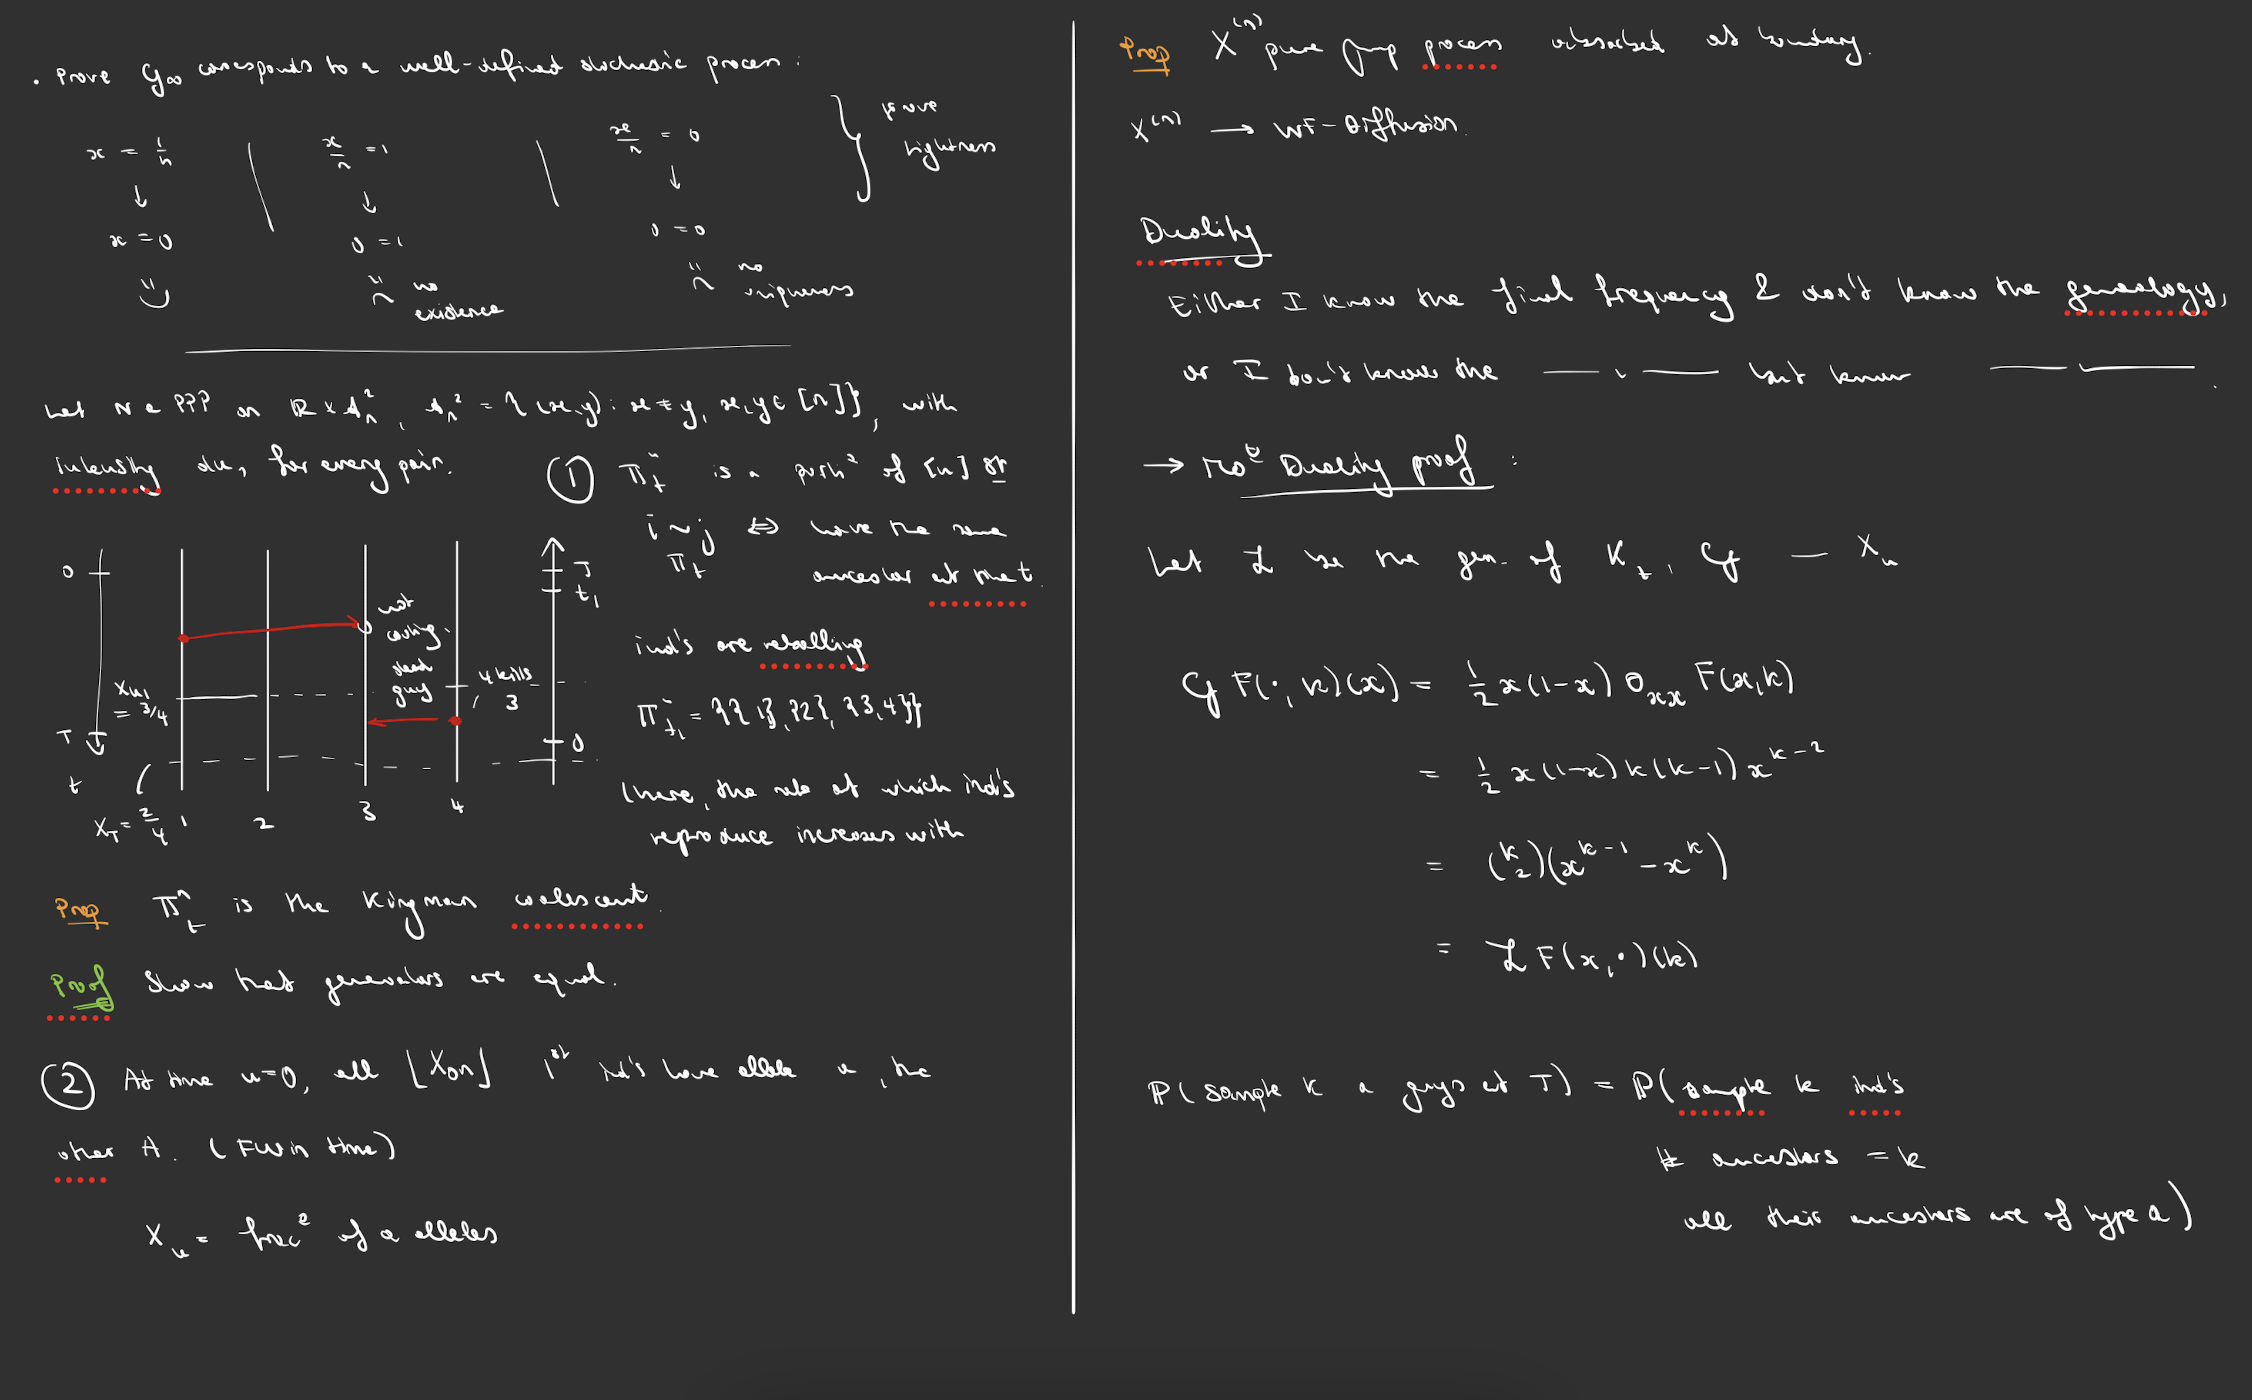 • Prove G∞ corresponds to a well-defined stochastic process :
x = 1/n
↓
x = 0
x/n = 1
↓
0 = 1
no existence
x/n = 0
↓
0 = 0
no uniqueness
} prove tightness
Let N a PPP on ℝ × Δn², Δn² = {(x,y) : x ≠ y, x,y ∈ [n]}, with
intensity du, for every pair.
① Πtⁿ is a part° of [n] st
i ~Πt j ⟺ have the same
ancestor at time t.
ind's are
Πt₁ⁿ = {{1},{2},{3,4}}
(here, the rate at which ind's
reproduce increases with
0
T
t
Xu₁ = 3/4
XT = 2/4
1 2 3 4
not
dead guy
4 kills 3
T
t₁
0
Prop Πtⁿ is the Kingman coalescent.
Proof Show that generators are equal.
② At time u=0, all ⌊X₀n⌋ 1st ind's have allele a, the
other A. (FW in time)
Xu = frac° of a alleles
Prop X⁽ⁿ⁾ pure jump process absorbed at boundary.
X⁽ⁿ⁾ → WF-Diffusion.
Duality
Either I know the final frequency & don't know the genealogy,
or I don't know the —— " —— but know —— " ——.
→ Duality proof :
Let ℒ be the gen. of Kt, G — Xu
G F(·, k)(x) = 1/2 x(1-x) ∂xx F(x,k)
= 1/2 x(1-x) k(k-1) x^(k-2)
= (k 2)(x^(k-1) - x^k)
= ℒ F(x,·)(k)
ℙ(sample k a guys at T) = ℙ(sample k ind's
# ancestors = k
all their ancestors are of type a)